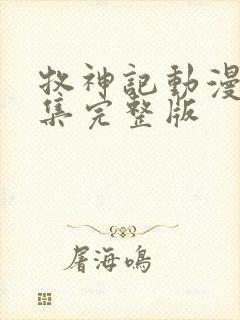 牧神記動漫
集完整版
屠海鳴